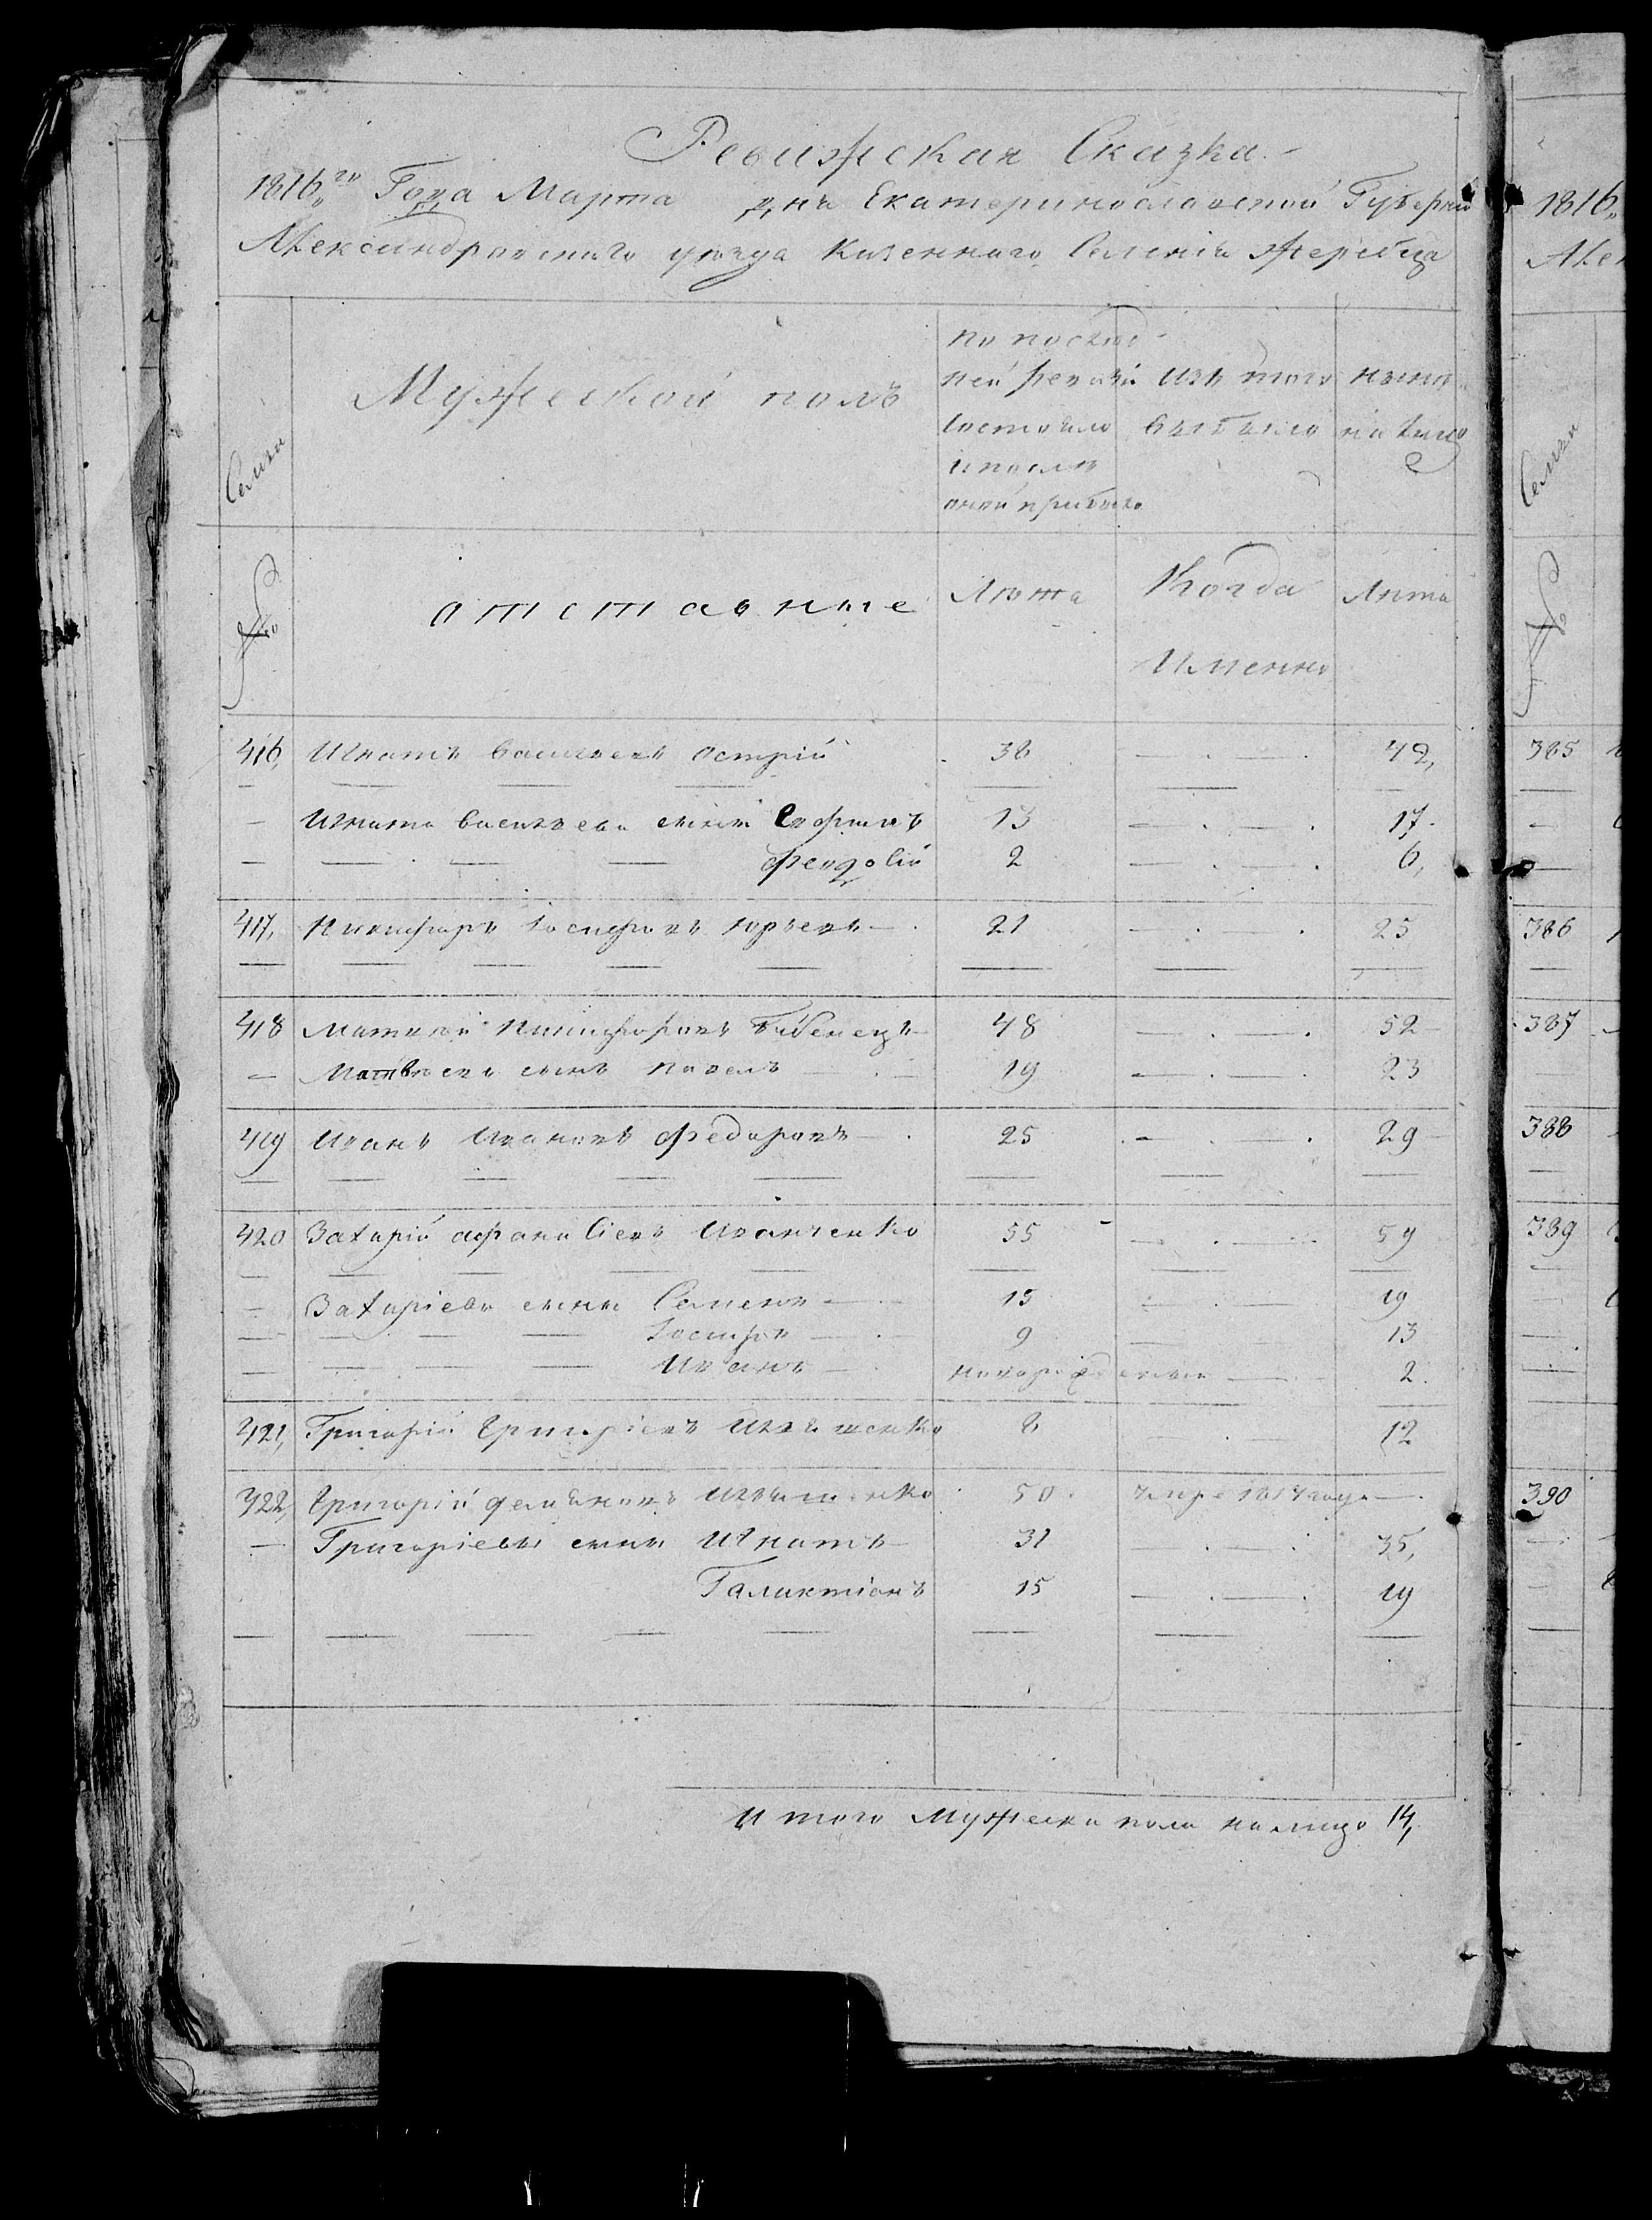 Ревижская Сказка
1816го Года Марта дня Екатеринославской Губернии
Александровского уезда Казеннаго Селенiя Жеребца
Семьи
Мужеской полъ
по послед
ней ревизiи
состояло
и после
оной прибыло
изъ того
выбыло
ныне
налицо
№
отставные
Лета
Когда
Именно
Лета
416, Игнатъ Васильевъ Острiй 38 42,
Игната Васильева сыни Евфимъ 13 17
Феодосiй 2 6,
417, Никифоръ Iосифовъ Юрьевъ 21 25
418 Матвей Никифоровъ 48 52
Матвеевъ сынъ Павелъ 19 23
419 Иванъ Ивановъ Федоровъ 25 29
420 Захарiй Афанасiевъ Иванченко 55 59
Захарiевы сыны Семенъ 15 19
Iосифъ 9 13
Иванъ новорожденъ 2
421, Григорiй Григорiевъ 8 12
422, Григорiй Демяновъ 50 умре 1814 году
Григорiевы сыны Игнатъ 31 35,
Галактiонъ 15 19
Итого Мужеска пола налицо 14,
1816
Алек
Семьи
№
385
386
387
388
389
390